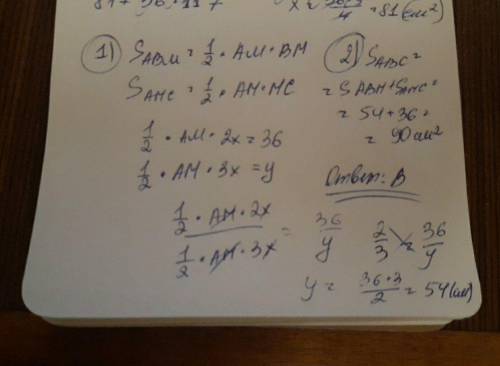 1) S_ABM = 1/2 · AM · BM
S_AMC = 1/2 · AM · MC
1/2 · AM · 2x = 36
1/2 · AM · 3x = y
(1/2 · AM · 2x) / (1/2 · AM · 3x) = 36/y
2/3 = 36/y
y = (36·3)/2 = 54 (см)
2) S_ABC =
= S_ABM + S_AMC =
= 54 + 36 =
= 90 см²
Ответ: В